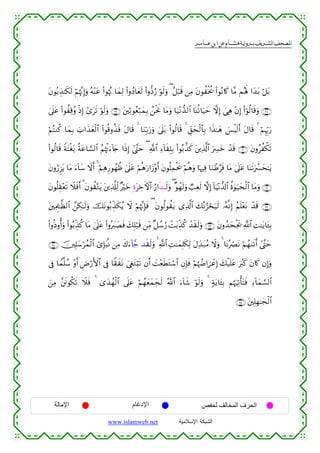 المصحف الشريف برواية هشام عن ابن عامر
بَلْ بَدَا لَهُم مَّا كَانُوا۟ يُخْفُونَ مِن قَبْلُ ۖ وَلَوْ رُدُّوا۟ لَعَادُوا۟ لِمَا نُهُوا۟ عَنْهُ وَإِنَّهُمْ لَكَـٰذِبُونَ
﴿٢٨﴾ وَقَالُوٓا۟ إِنْ هِىَ إِلَّا حَيَاتُنَا ٱلدُّنْيَا وَمَا نَحْنُ بِمَبْعُوثِينَ ﴿٢٩﴾ وَلَوْ تَرَىٰٓ إِذْ وُقِفُوا۟ عَلَىٰ
رَبِّهِمْ ۚ قَالَ أَلَيْسَ هَـٰذَا بِٱلْحَقِّ ۚ قَالُوا۟ بَلَىٰ وَرَبِّنَا ۚ قَالَ فَذُوقُوا۟ ٱلْعَذَابَ بِمَا كُنتُمْ
تَكْفُرُونَ ﴿٣٠﴾ قَدْ خَسِرَ ٱلَّذِينَ كَذَّبُوا۟ بِلِقَآءِ ٱللَّهِ ۖ حَتَّىٰٓ إِذَا جَآءَتْهُمُ ٱلسَّاعَةُ بَغْتَةً قَالُوا۟
يَـٰحَسْرَتَنَا عَلَىٰ مَا فَرَّطْنَا فِيهَا وَهُمْ يَحْمِلُونَ أَوْزَارَهُمْ عَلَىٰ ظُهُورِهِمْ ۚ أَلَا سَآءَ مَا يَزِرُونَ
﴿٣١﴾ وَمَا ٱلْحَيَوٰةُ ٱلدُّنْيَآ إِلَّا لَعِبٌ وَلَهْوٌ ۖ وَلَدَارُ ٱلْـَٔاخِرَةِ خَيْرٌ لِّلَّذِينَ يَتَّقُونَ ۗ أَفَلَا تَعْقِلُونَ
﴿٣٢﴾ قَدْ نَعْلَمُ إِنَّهُۥ لَيَحْزُنُكَ ٱلَّذِى يَقُولُونَ ۖ فَإِنَّهُمْ لَا يُكَذِّبُونَكَ وَلَـٰكِنَّ ٱلظَّـٰلِمِينَ
بِـَٔايَـٰتِ ٱللَّهِ يَجْحَدُونَ ﴿٣٣﴾ وَلَقَدْ كُذِّبَتْ رُسُلٌ مِّن قَبْلِكَ فَصَبَرُوا۟ عَلَىٰ مَا كُذِّبُوا۟ وَأُوذُوا۟
حَتَّىٰٓ أَتَىٰهُمْ نَصْرُنَا ۚ وَلَا مُبَدِّلَ لِكَلِمَـٰتِ ٱللَّهِ ۚ وَلَقَدْ جَآءَكَ مِن نَّبَإِى۟ ٱلْمُرْسَلِينَ ﴿٣٤﴾
وَإِن كَانَ كَبُرَ عَلَيْكَ إِعْرَاضُهُمْ فَإِنِ ٱسْتَطَعْتَ أَن تَبْتَغِىَ نَفَقًا فِى ٱلْأَرْضِ أَوْ سُلَّمًا فِى
ٱلسَّمَآءِ فَتَأْتِيَهُم بِـَٔايَةٍ ۚ وَلَوْ شَآءَ ٱللَّهُ لَجَمَعَهُمْ عَلَى ٱلْهُدَىٰ ۚ فَلَا تَكُونَنَّ مِنَ
ٱلْجَـٰهِلِينَ ﴿٣٥﴾
الحرف المخالف لحفص الإدغام الإمالة
الشبكة الإسلامية www.islamweb.net